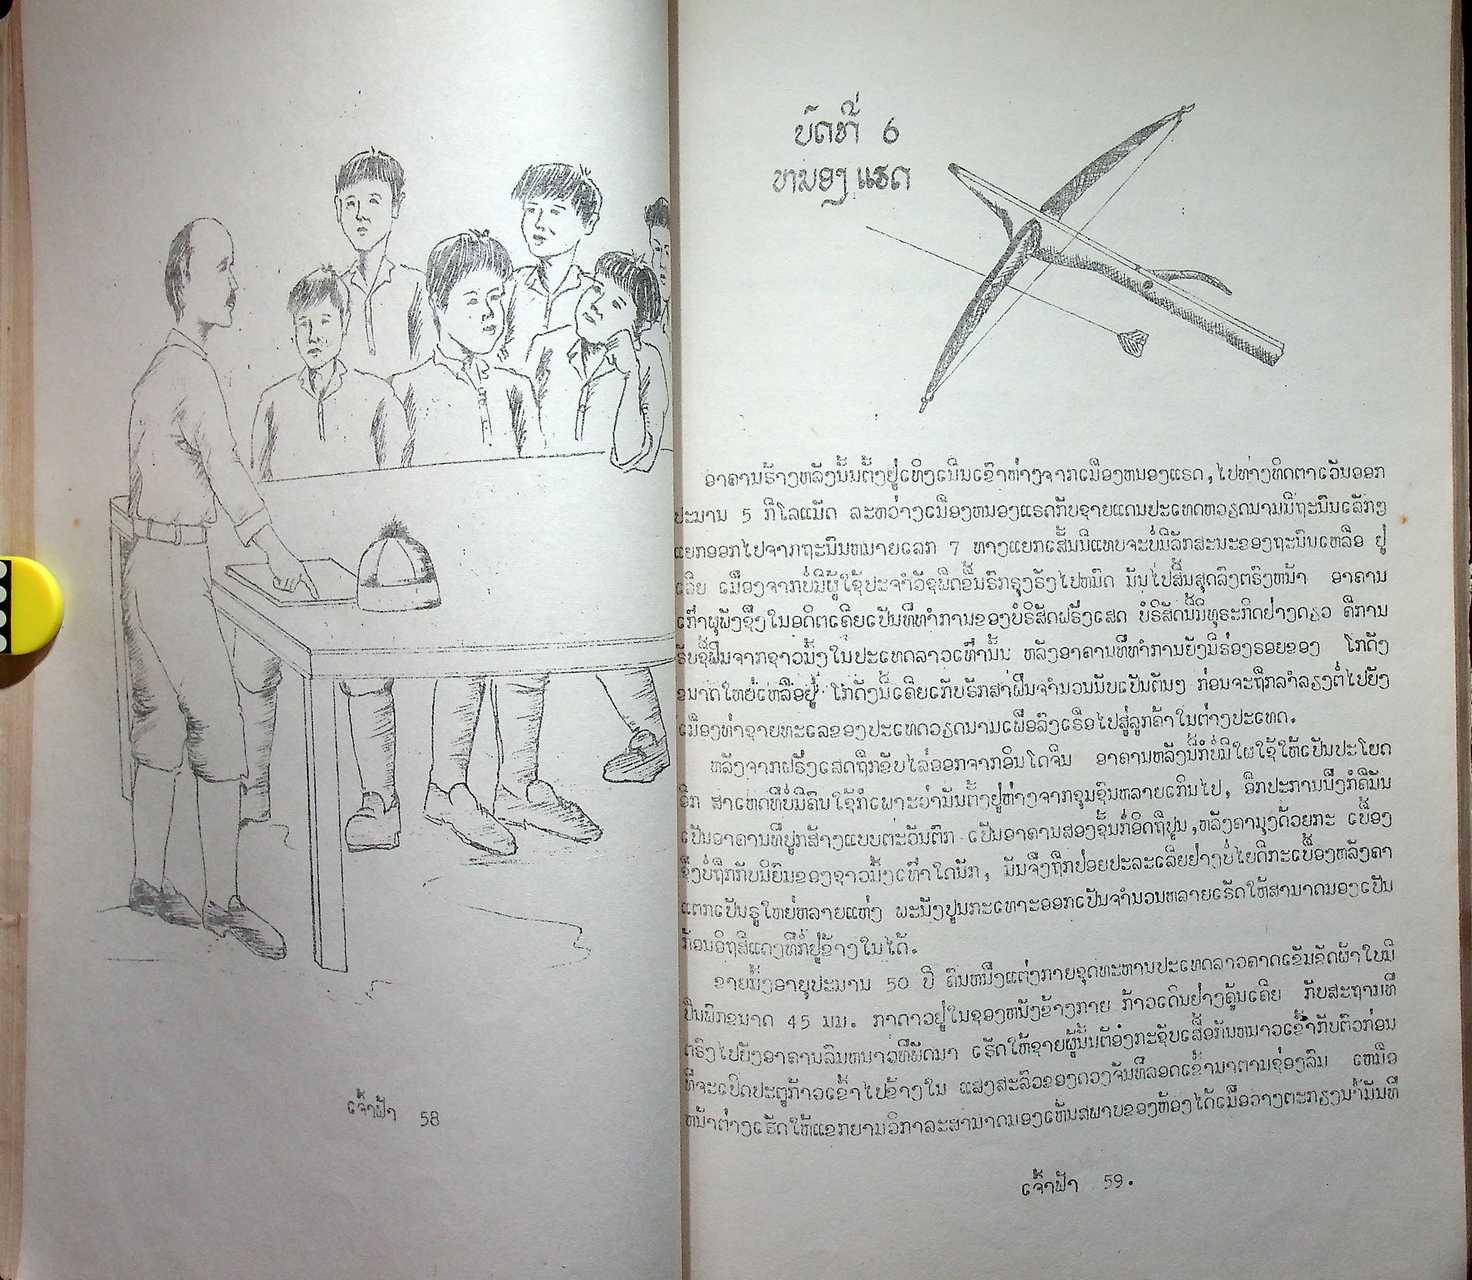 ເຈົ້າຟ້າ 58
ບົດທີ່ 6
ຫນອງ ແຮດ
ອາຄານຮ້າງຫລັງນັ້ນຕັ້ງຢູ່ເທິງເນີນເຂົາຫ່າງຈາກເມືອງຫນອງແຮດ, ໄປທາງທິດຕາເວັນອອກ
ປະມານ 5 ກີໂລແມັດ ລະຫວ່າງເມືອງຫນອງແຮດກັບຊາຍແດນປະເທດຫວຽດນາມມີຖະນົນເລັກໆ
ແຍກອອກໄປຈາກຖະນົນຫມາຍເລກ 7 ທາງແຍກເສັ້ນນີ້ແທບຈະບໍ່ມີລັກສະນະຂອງຖະນົນເຫລືອ ຢູ່
ເລີຍ ເນື່ອງຈາກບໍ່ມີຜູ້ໃຊ້ປະຈຳວັຊພືດຂື້ນຮົກຮຸງຮັງໄປຫມົດ ມັນໄປສິ້ນສຸດລົງຕຣົງຫນ້າ ອາຄານ
ເກົ່າຜຸພັງຊຶ່ງໃນອດີຕເຄີຍເປັນທີ່ທຳການຂອງບໍຣິສັດຝຣັ່ງເສດ ບໍຣິສັດນີ້ມີທຸຣະກິດຢ່າງດຽວ ຄືການ
ຮັບຊື້ຝິ່ນຈາກຊາວມົ້ງໃນປະເທດລາວເທົ່ານັ້ນ ຫລັງອາຄານທີ່ທຳການຍັງມີຮ່ອງຮອຍຂອງ ໂກດັງ
ຂນາດໃຫຍ່ເຫລືອຢູ່ ໂກດັງນີ້ເຄີຍເກັບຮັກສາຝິ່ນຈຳນວນນັບເປັນຕັນໆ ກ່ອນຈະຖືກລຳລຽງຕໍ່ໄປຍັງ
ເມືອງທ່າຊາຍທະເລຂອງປະເທດວຽດນາມເພື່ອລົງເຮືອໄປສູ່ລູກຄ້າໃນຕ່າງປະເທດ.
ຫລັງຈາກຝຣັ່ງເສດຖືກຂັບໄລ່ອອກຈາກອິນໂດຈີນ ອາຄານຫລັງນີ້ກໍບໍ່ມີໃຜໃຊ້ໃຫ້ເປັນປະໂຍດ
ອີກ ສາເຫດທີ່ບໍ່ມີຄົນໃຊ້ກໍເພາະວ່າມັນຕັ້ງຢູ່ຫ່າງຈາກຊຸມຊົນຫລາຍເກີນໄປ, ອີກປະການນຶ່ງກໍຄືມັນ
ເປັນອາຄານທີ່ປູກສ້າງແບບຕະວັນຕົກ ເປັນອາຄານສອງຊັ້ນກໍ່ອິດຖືປູນ, ຫລັງຄາມຸງດ້ວຍກະ ເບື້ອງ
ຊຶ່ງບໍ່ຖືກກັບນິຍົມຂອງຊາວມົ້ງເທົ່າໃດນັກ, ມັນຈຶ່ງຖືກປ່ອຍປະລະເລີຍຢ່າງບໍ່ໄຍດີກະເບື້ອງຫລັງຄາ
ແຕກເປັນຮູໃຫຍ່ຫລາຍແຫ່ງ ພະນັງປູນກະເທາະອອກເປັນຈຳນວນຫລາຍເຮັດໃຫ້ສາມາດມອງເປັນ
ກ້ອນອິຖສີແດງທີ່ກໍ່ຢູ່ຂ້າງໃນໄດ້.
ຊາຍມົ້ງອາຍຸປະມານ 50 ປີ ຄົນຫນຶ່ງແຕ່ງກາຍຊຸດທະຫານປະເທດລາວຄາດເຂັມຂັດຜ້າໃບມີ
ປືນພົກຂນາດ 45 ມມ. ກາດາວຢູ່ໃນຊອງຫນັງຂ້າງກາຍ ກ້າວເດີນຢ່າງຄຸ້ນເຄີຍ ກັບສະຖານທີ່
ຕຣົງໄປຍັງອາຄານລົມຫນາວທີ່ພັດມາ ເຮັດໃຫ້ຊາຍຜູ້ນັ້ນຕ້ອງກະຊັບເສື້ອກັນຫນາວເຂົ້າກັບຕົວກ່ອນ
ທີ່ຈະເປີດປະຕູກ້າວເຂົ້າໄປຂ້າງໃນ ແສງສະລົວຂອງດວງຈັນທີ່ລອດເຂົ້າມາຕາມຊ່ອງລົມ ເຫນືອ
ຫນ້າຕ່າງເຮັດໃຫ້ແຂກຍາມວິກາລະສາມາດມອງເຫັນສພາບຂອງຫ້ອງໄດ້ເມື່ອວາງຕະກຽງນ້ຳມັນທີ່
ເຈົ້າຟ້າ 59.